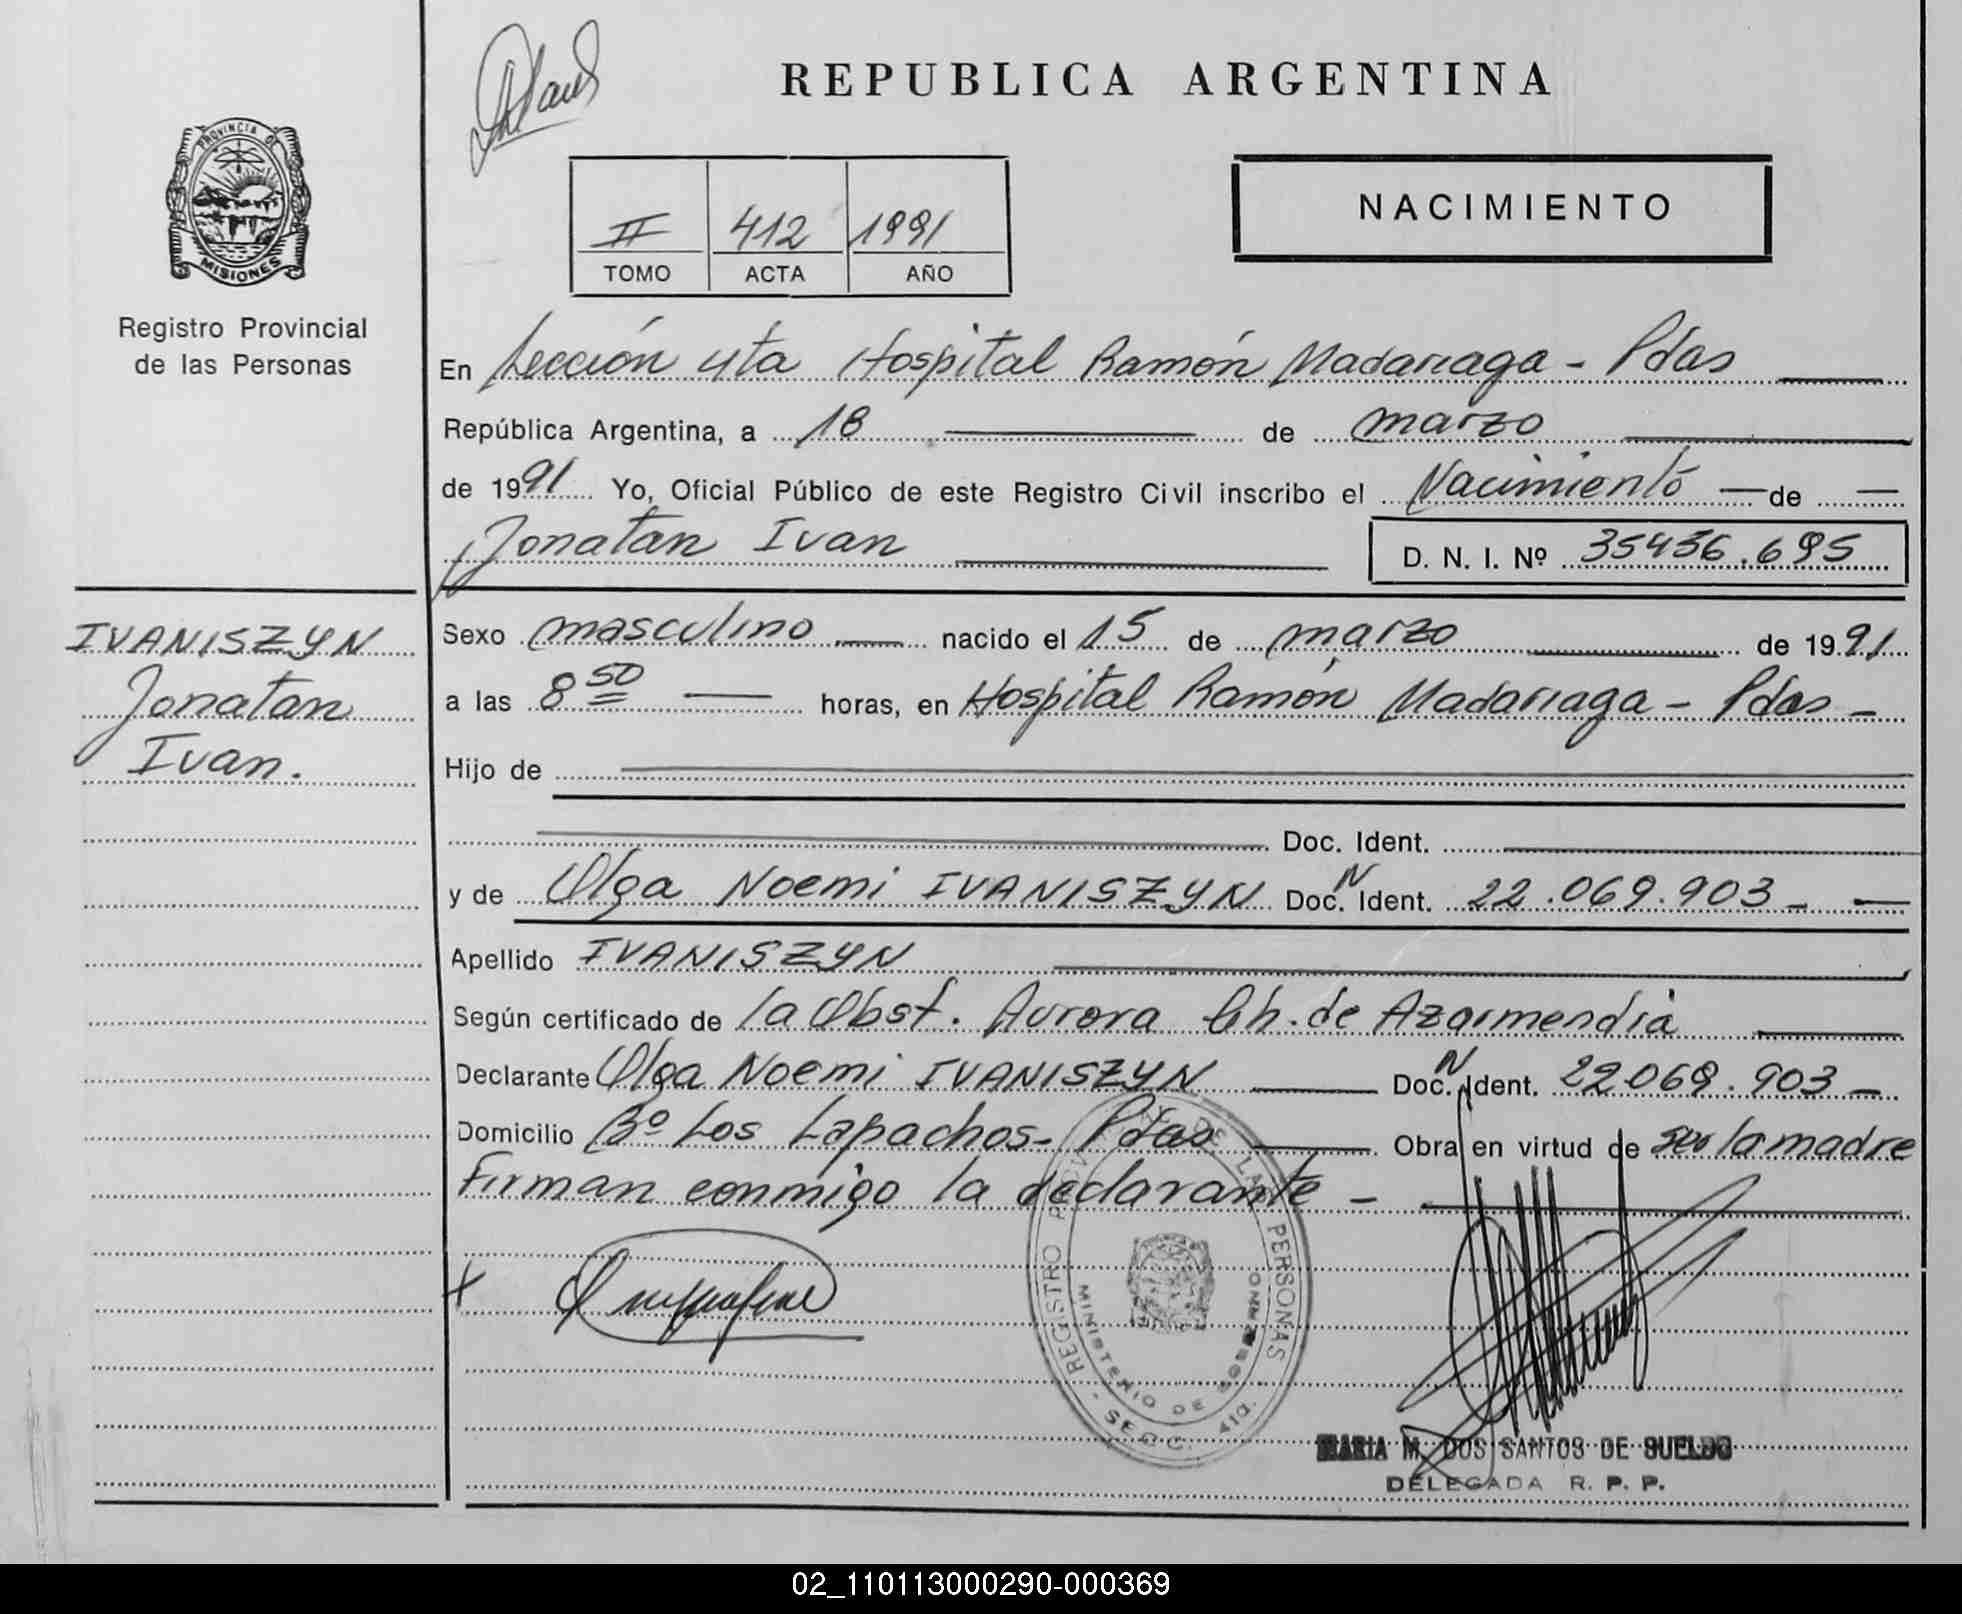 REPUBLICA ARGENTINA
PROVINCIA DE
MISIONES
Registro Provincial
de las Personas
II 412 1991
TOMO ACTA AÑO
NACIMIENTO
En Sección 4ta Hospital Ramón Madariaga - Pdas
República Argentina, a 18 de marzo
de 1991 Yo, Oficial Público de este Registro Civil inscribo el Nacimiento de
Jonatan Ivan D. N. I. Nº 35436.695
IVANISZYN
Jonatan
Ivan.
Sexo masculino nacido el 15 de marzo de 1991
a las 8 50 horas, en Hospital Ramón Madariaga - Pdas -
Hijo de
Doc. Ident.
y de Olga Noemi IVANISZYN Doc. N Ident. 22.069.903 -
Apellido IVANISZYN
Según certificado de la Obst. Aurora Ch. de Azarmendia
Declarante Olga Noemi IVANISZYN Doc. N Ident. 22069.903 -
Domicilio Bº Los Lapachos - Pdas Obra en virtud de ser la madre
Firman conmigo la declarante -
REGISTRO DE LAS PERSONAS
MINISTERIO DE GOBIERNO
- SECC. 4ta.
MARIA M. DOS SANTOS DE SUELDO
DELEGADA R. P. P.
02_110113000290-000369